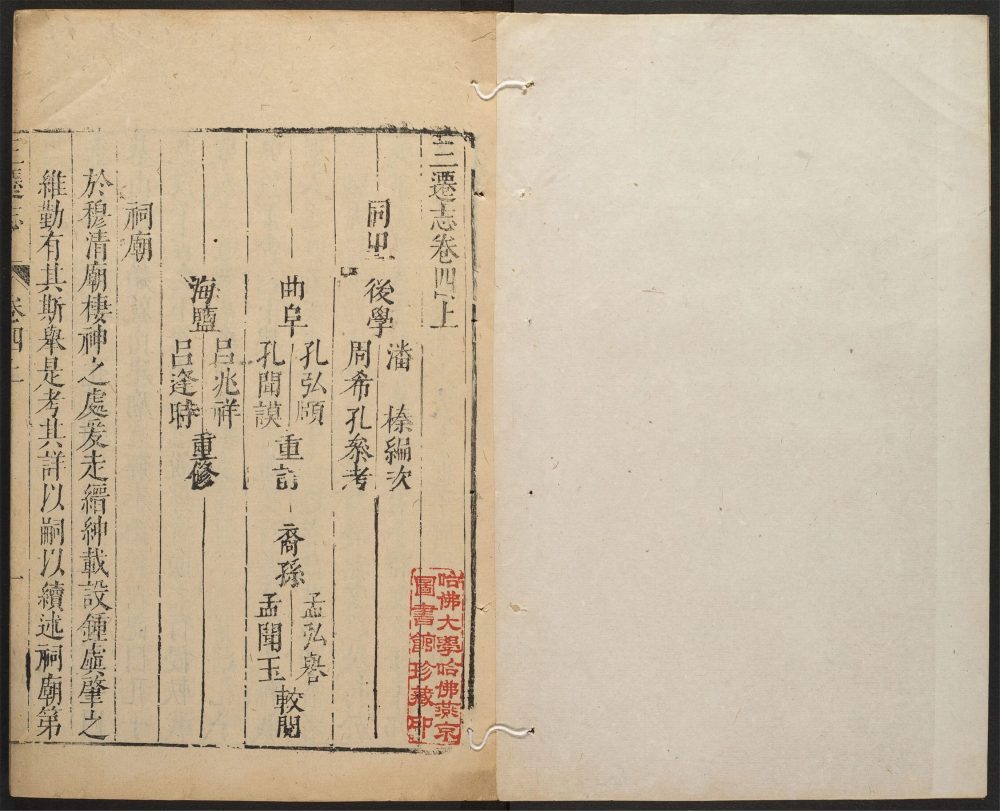 三遷志卷四上
祠里
後學
潘 榛編次
周希孔叅考
曲阜
孔弘頎
孔聞謨
重訂
裔孫
孟弘譽
孟聞玉
較閱
海鹽
呂兆祥
呂逢時
重修
祠廟
於穆清廟棲神之處爰走縉紳載設鍾虡肇之
維勤有其斯舉是考其詳以嗣以續述祠廟第
三遷志
卷四上
一
哈佛大學哈佛燕京
圖書館珍藏印